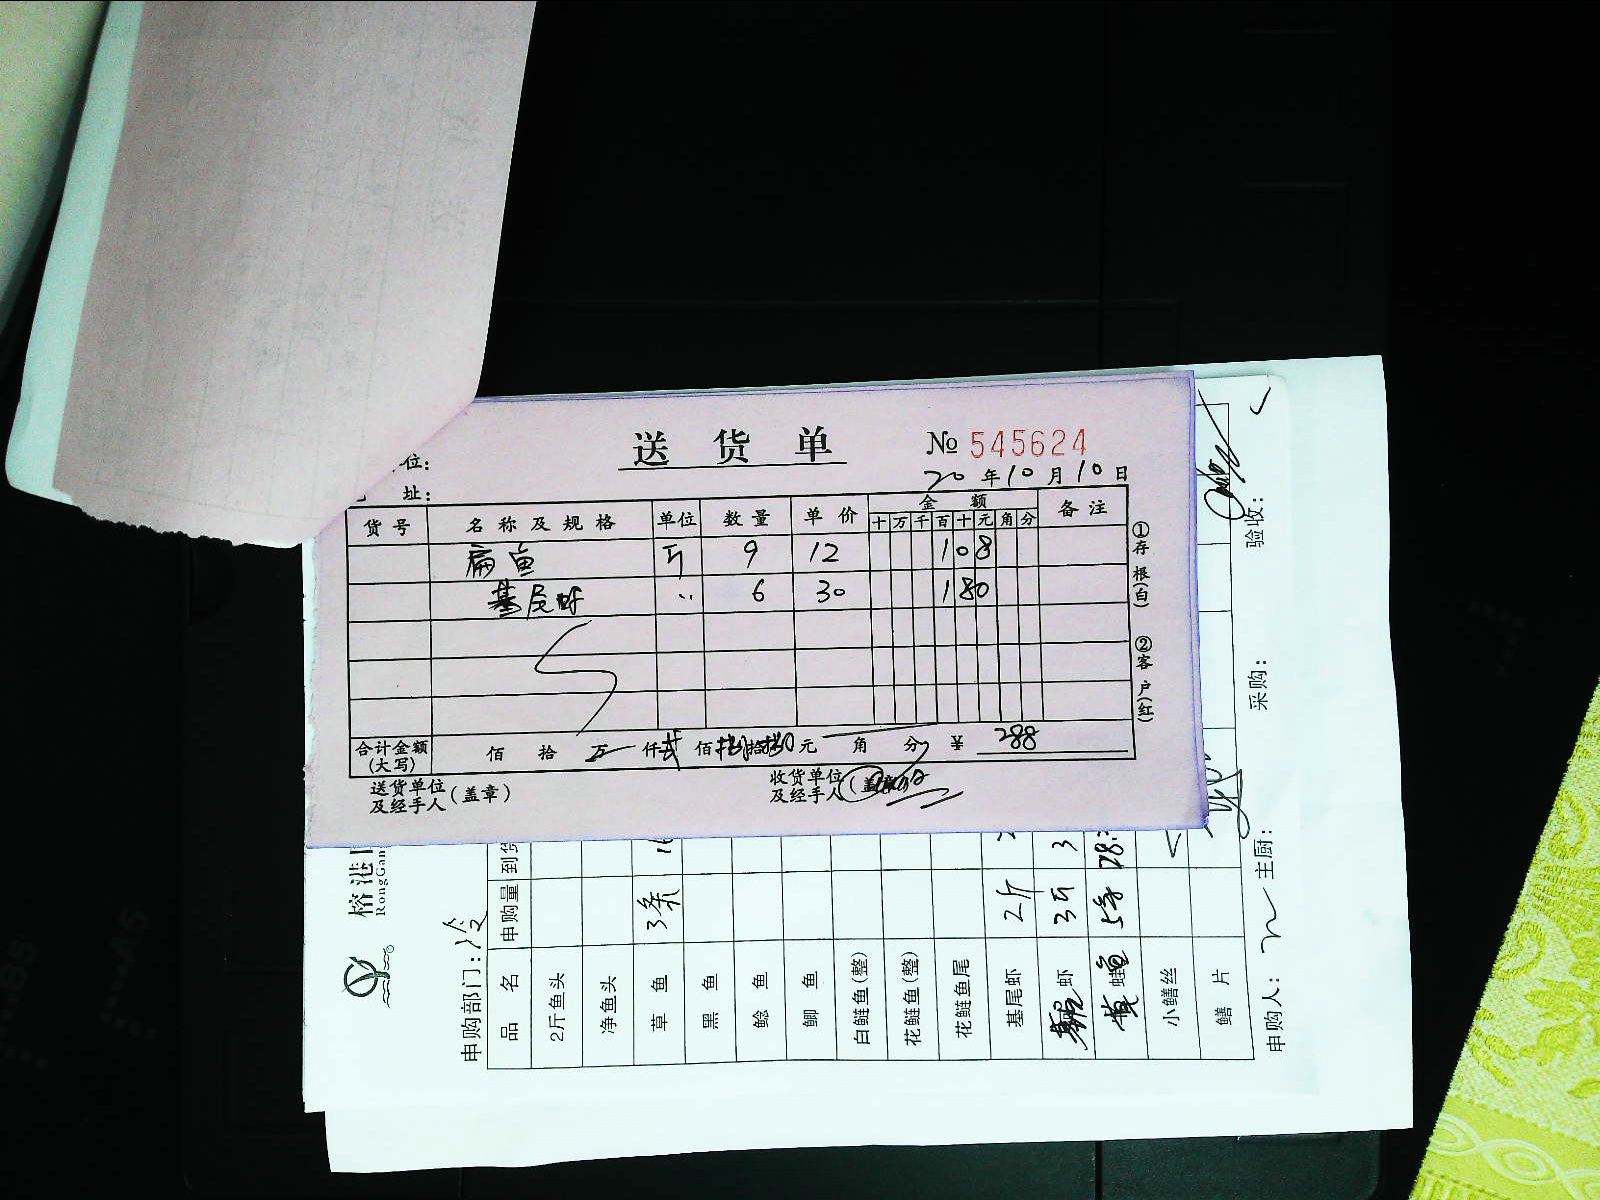 送货单
№ 545624
位:
20年10月10日
址:
货号 名称及规格 单位 数量 单价 金额 备注
十 万 千 百 十 元 角 分
扁鱼 斤 9 12 108
基尾虾 〃 6 30 180
合计金额(大写) 佰 拾 万 仟 贰 佰 捌 拾 捌 元 角 分 ¥ 288
送货单位及经手人(盖章)
收货单位及经手人
①存根(白)
②客户(红)
榕港
RongGan
申购部门:冷
品名 申购量 到货
2斤鱼头
净鱼头
草鱼 3条
黑鱼
鲶鱼
鲫鱼
白鲢鱼(整)
花鲢鱼(整)
花鲢鱼尾
基尾虾 2斤
虾 3斤 3
黄 5条 28
小鳝丝
鳝片
申购人: 主厨: 采购: 验收: